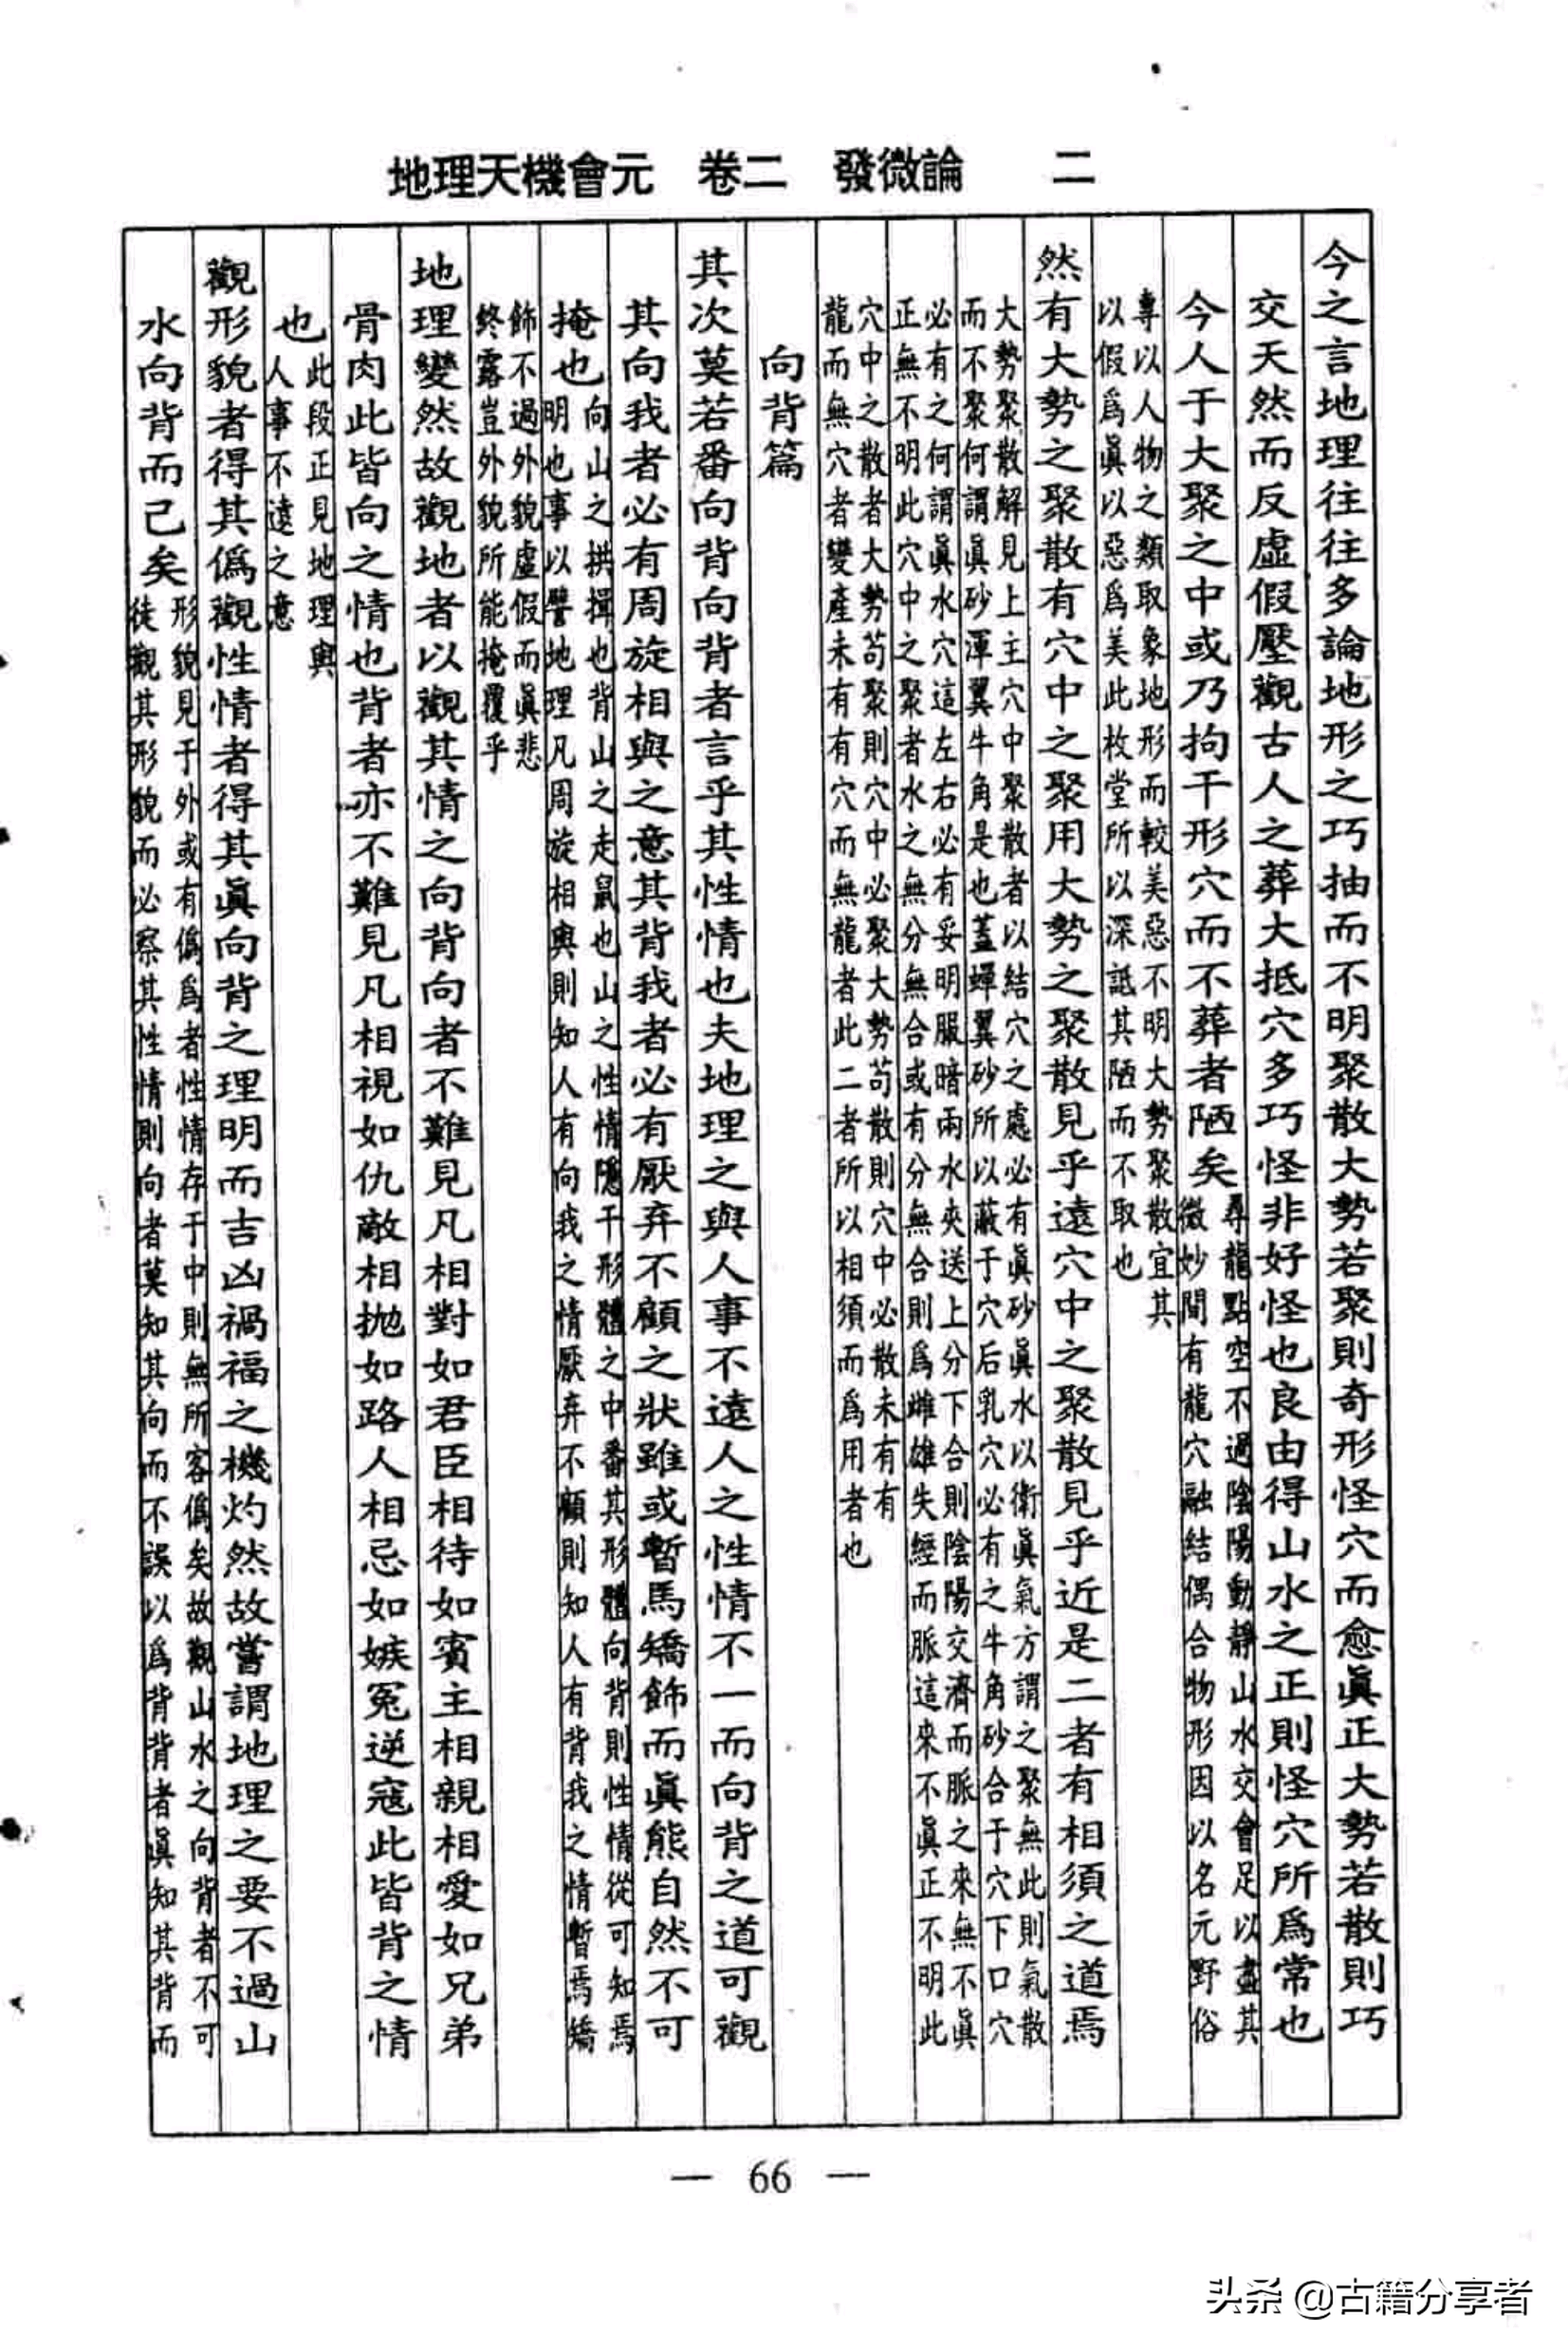 地理天機會元　卷二　發微論　　二
今之言地理往往多論地形之巧抽而不明聚散大勢若聚則奇形怪穴而愈眞正大勢若散則巧
交天然而反虛假壓觀古人之葬大抵穴多巧怪非好怪也良由得山水之正則怪穴所爲常也
今人于大聚之中或乃拘干形穴而不葬者陋矣
尋龍點空不過陰陽動靜山水交會足以盡其
微妙間有龍穴融結偶合物形因以名元野俗
專以人物之類取象地形而較美惡不明大勢聚散宜其
以假爲眞以惡爲美此枚堂所以深詆其陋而不取也
然有大勢之聚散有穴中之聚用大勢之聚散見乎遠穴中之聚散見乎近是二者有相須之道焉
大勢聚散解見上主穴中聚散者以結穴之處必有眞砂眞水以衛眞氣方謂之聚無此則氣散
而不聚何謂眞砂渾翼牛角是也蓋蟬翼砂所以蔽于穴后乳穴必有之牛角砂合于穴下口穴
必有之何謂眞水穴這左右必有妥明服暗兩水夾送上分下合則陰陽交濟而脈之來無不眞
正無不明此穴中之聚者水之無分無合或有分無合則爲雌雄失經而脈這來不眞正不明此
穴中之散者大勢苟聚則穴中必聚大勢苟散則穴中必散未有有
龍而無穴者變產未有有穴而無龍者此二者所以相須而爲用者也
向背篇
其次莫若番向背向背者言乎其性情也夫地理之與人事不遠人之性情不一而向背之道可觀
其向我者必有周旋相與之意其背我者必有厭弃不顧之狀雖或暫馬矯飾而眞熊自然不可
掩也
向山之拱揖也背山之走鼠也山之性情隱干形體之中番其形體向背則性情從可知焉
明也事以譬地理凡周旋相與則知人有向我之情厭弃不顧則知人有背我之情暫焉矯
飾不過外貌虛假而眞悲
終露豈外貌所能掩覆乎
地理變然故觀地者以觀其情之向背向者不難見凡相對如君臣相待如賓主相親相愛如兄弟
骨肉此皆向之情也背者亦不難見凡相視如仇敵相拋如路人相忌如嫉冤逆寇此皆背之情
也
此段正見地理與
人事不遠之意
觀形貌者得其僞觀性情者得其眞向背之理明而吉凶禍福之機灼然故嘗謂地理之要不過山
水向背而已矣
形貌見于外或有僞爲者性情存于中則無所客僞矣故觀山水之向背者不可
徒觀其形貌而必察其性情則向者莫知其向而不誤以爲背背者眞知其背而
— 66 —
头条 @古籍分享者